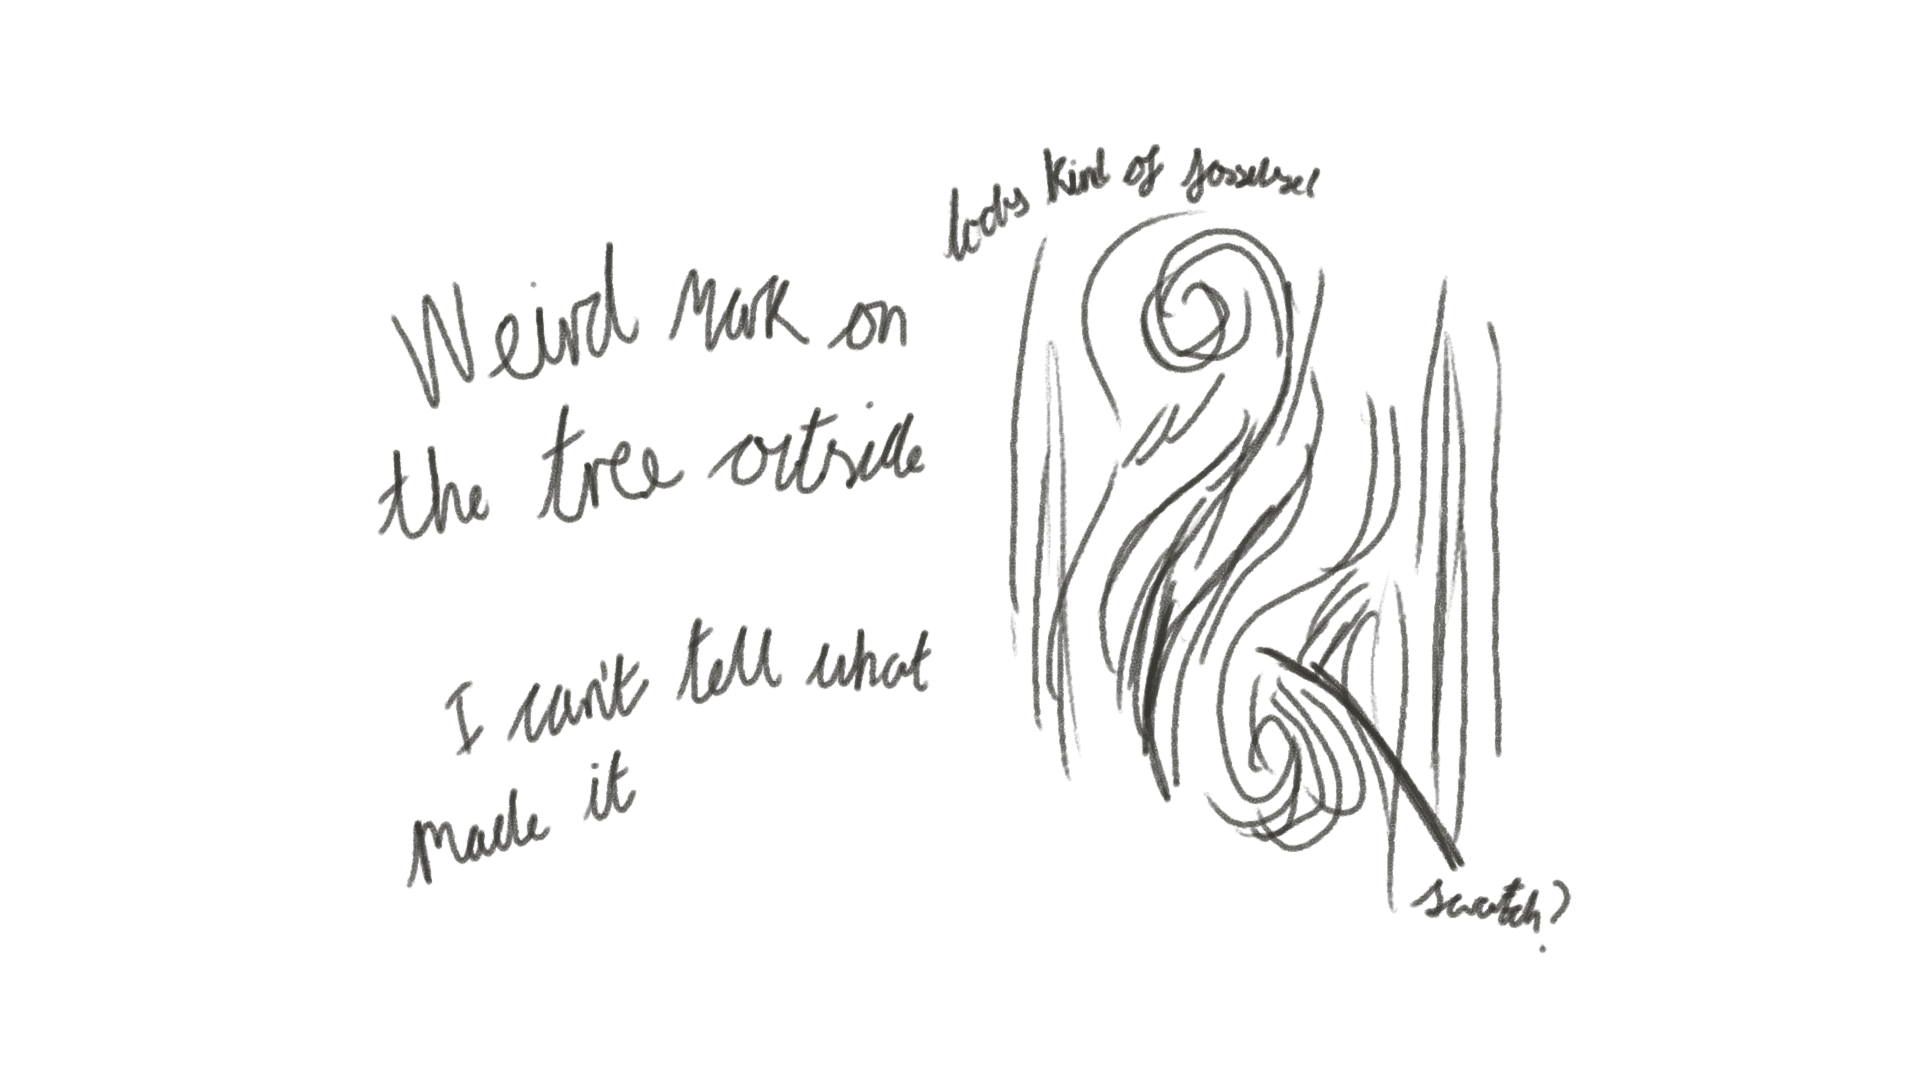 Weird mark on
the tree outside
I can't tell what
made it
looks kind of
scratch?